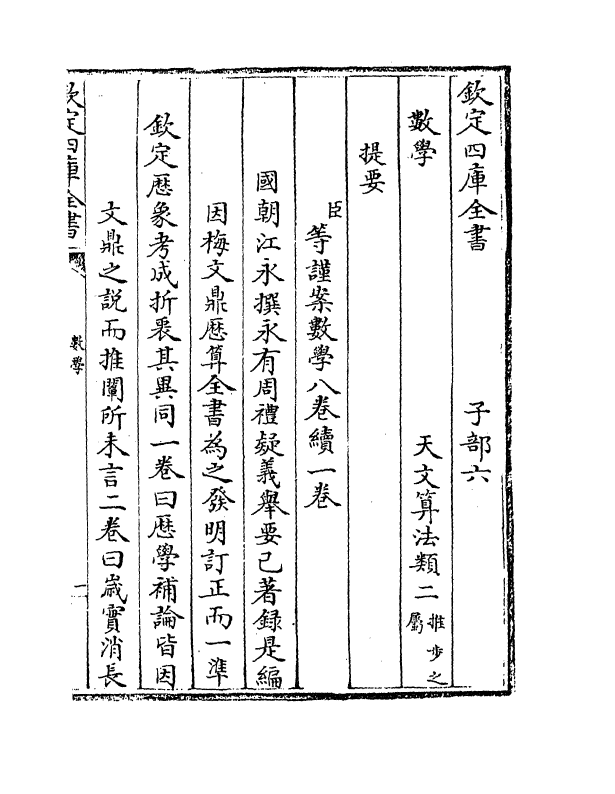 欽定四庫全書　子部六
數學　天文算法類二推步之屬
提要
臣等謹案數學八卷續一卷
國朝江永撰永有周禮疑義舉要已著録是編
因梅文鼎厯算全書為之發明訂正而一準
欽定厯象考成折衷其異同一卷曰厯學補論皆因
文鼎之説而推闡所未言二卷曰嵗實消長
欽定四庫全書
數學
一